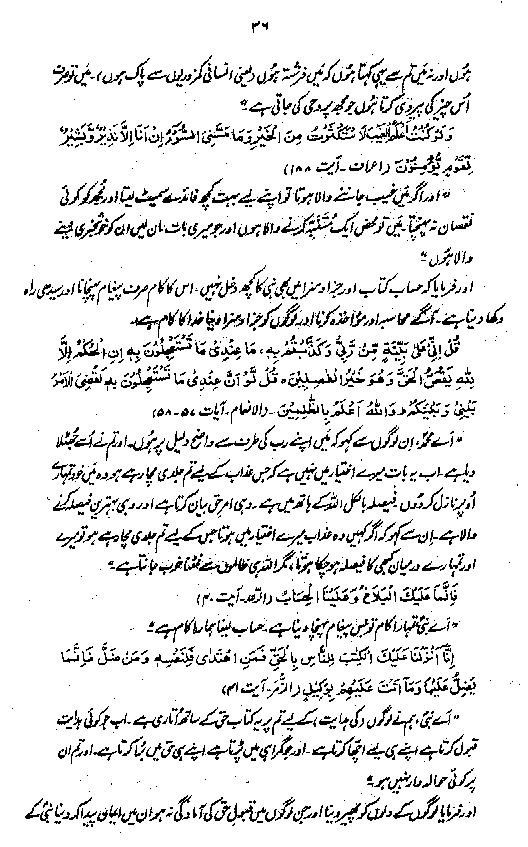 ۳۶
ہوں اور نہ میں تم سے یہی کہتا ہوں کہ میں فرشتہ ہوں (یعنی انسانی کمزوریوں سے پاک ہوں)۔ میں تو صرف
اُس چیز کی پیروی کرتا ہوں جو مجھ پر وحی کی جاتی ہے"
وَلَوْ كُنْتُ أَعْلَمُ الْغَيْبَ لَا سْتَكْثَرْتُ مِنَ الْخَيْرِ وَمَا مَسَّنِيَ السُّوْءُ إِنْ أَنَا إِلَّا نَذِيْرٌ وَّبَشِيْرٌ
لِّقَوْمٍ يُّؤْمِنُوْنَ (اعراف۔ آیت ۱۸۸)
"اور اگر میں غیب جاننے والا ہوتا تو اپنے لیے بہت کچھ فائدے سمیٹ لیتا اور مجھ کو کوئی
نقصان نہ پہنچتا۔ میں تو محض ایک متنبہ کرنے والا ہوں اور جو میری بات مان لیں ان کو خوشخبری دینے
والا ہوں"
اور فرمایا کہ حساب کتاب اور جزا و سزا میں بھی نبی کا کچھ دخل نہیں۔ اس کا کام صرف پیغام پہنچانا اور سیدھی راہ
دکھا دینا ہے۔ آگے محاسبہ اور مؤاخذہ کرنا اور لوگوں کو جزا و سزا دینا خدا کا کام ہے۔
قُلْ إِنِّيْ عَلَىٰ بَيِّنَةٍ مِّنْ رَّبِّيْ وَكَذَّبْتُمْ بِهِ، مَا عِنْدِيْ مَا تَسْتَعْجِلُوْنَ بِهِ إِنِ الْحُكْمُ إِلَّا
لِلّٰهِ يَقُصُّ الْحَقَّ وَهُوَ خَيْرُ الْفٰصِلِيْنَ، قُلْ لَّوْ أَنَّ عِنْدِيْ مَا تَسْتَعْجِلُوْنَ بِهِ لَقُضِيَ الْأَمْرُ
بَيْنِيْ وَبَيْنَكُمْ وَاللّٰهُ أَعْلَمُ بِالظّٰلِمِيْنَ۔ (الانعام۔ آیات ۵۷-۵۸)
"اے محمدؐ، ان لوگوں سے کہو کہ میں اپنے رب کی طرف سے واضح دلیل پر ہوں۔ اور تم نے اُسے جھٹلا
دیا ہے۔ اب یہ بات میرے اختیار میں نہیں ہے کہ جس عذاب کے لیے تم جلدی مچا رہے ہو وہ میں خود تمہارے
اُوپر نازل کر دوں۔ فیصلہ بالکل اللہ کے ہاتھ میں ہے۔ وہی امر حق بیان کرتا ہے اور وہی بہترین فیصلہ کرنے
والا ہے۔ ان سے کہو کہ اگر کہیں وہ عذاب میرے اختیار میں ہوتا جس کے لیے تم جلدی مچا رہے ہو تو میرے
اور تمہارے درمیان کبھی کا فیصلہ ہو چکا ہوتا، مگر اللہ ہی ظالموں سے نمٹنا خوب جانتا ہے"
فَإِنَّمَا عَلَيْكَ الْبَلَاغُ وَعَلَيْنَا الْحِسَابُ (الرعد۔ آیت ۴۰)
"اے نبیؐ تمہارا کام تو بس پیغام پہنچا دینا ہے۔ حساب لینا ہمارا کام ہے"
إِنَّا أَنْزَلْنَا عَلَيْكَ الْكِتٰبَ لِلنَّاسِ بِالْحَقِّ فَمَنِ اهْتَدٰى فَلِنَفْسِهِ وَمَنْ ضَلَّ فَإِنَّمَا
يَضِلُّ عَلَيْهَا وَمَا أَنْتَ عَلَيْهِمْ بِوَكِيْلٍ (الزمر۔ آیت ۴۱)
"اے نبیؐ، ہم نے لوگوں (کی ہدایت) کے لیے تم پر یہ کتاب حق کے ساتھ اُتاری ہے۔ اب جو کوئی ہدایت
قبول کرتا ہے اپنے ہی لیے اچھا کرتا ہے۔ اور جو گمراہی میں پڑتا ہے اپنے ہی حق میں بُرا کرتا ہے۔ اور تم ان
پر کوئی حوالہ دار نہیں ہو"
اور فرمایا لوگوں کے دلوں کو پھیر دینا اور جن لوگوں میں قبولِ حق کی آمادگی نہ ہو ان میں ایمان پیدا کر دینا نبیؐ کے